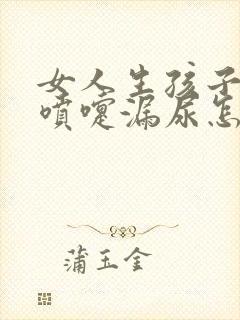 女人生孩子
喷嚏漏尿怎
蒲玉金